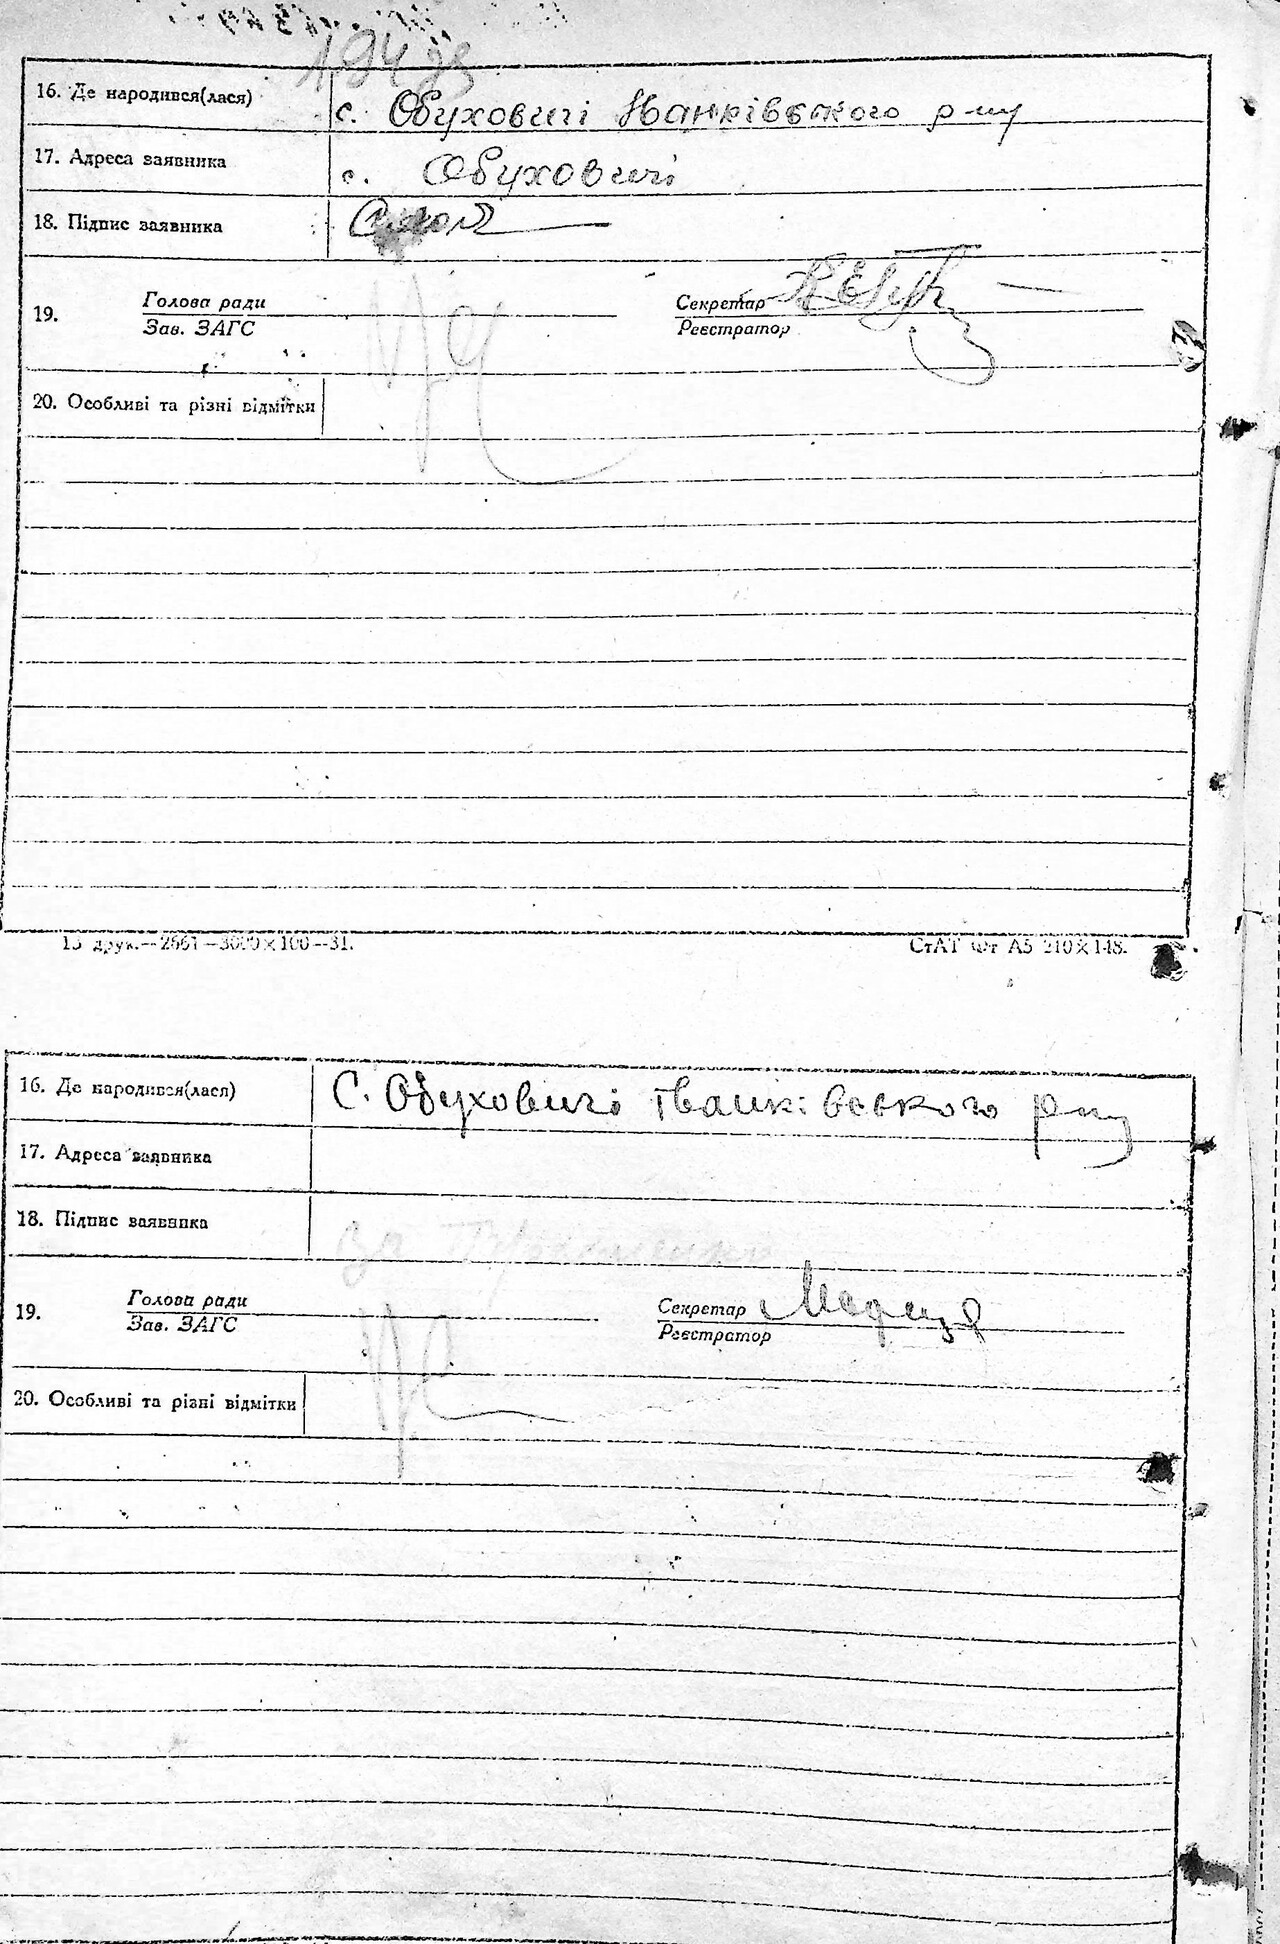 16. Де народився(лася) с. Обуховичі Іванківського р-ну
17. Адреса заявника с. Обуховичі
18. Підпис заявника
19. Голова ради Секретар
Зав. ЗАГС Реєстратор
20. Особливі та різні відмітки
13 друк.—2661—3000×100—31. СтАТ Фт А5 210×148.
16. Де народився(лася) С. Обуховичі Іванківського р-ну
17. Адреса заявника
18. Підпис заявника
19. Голова ради Секретар
Зав. ЗАГС Реєстратор
20. Особливі та різні відмітки